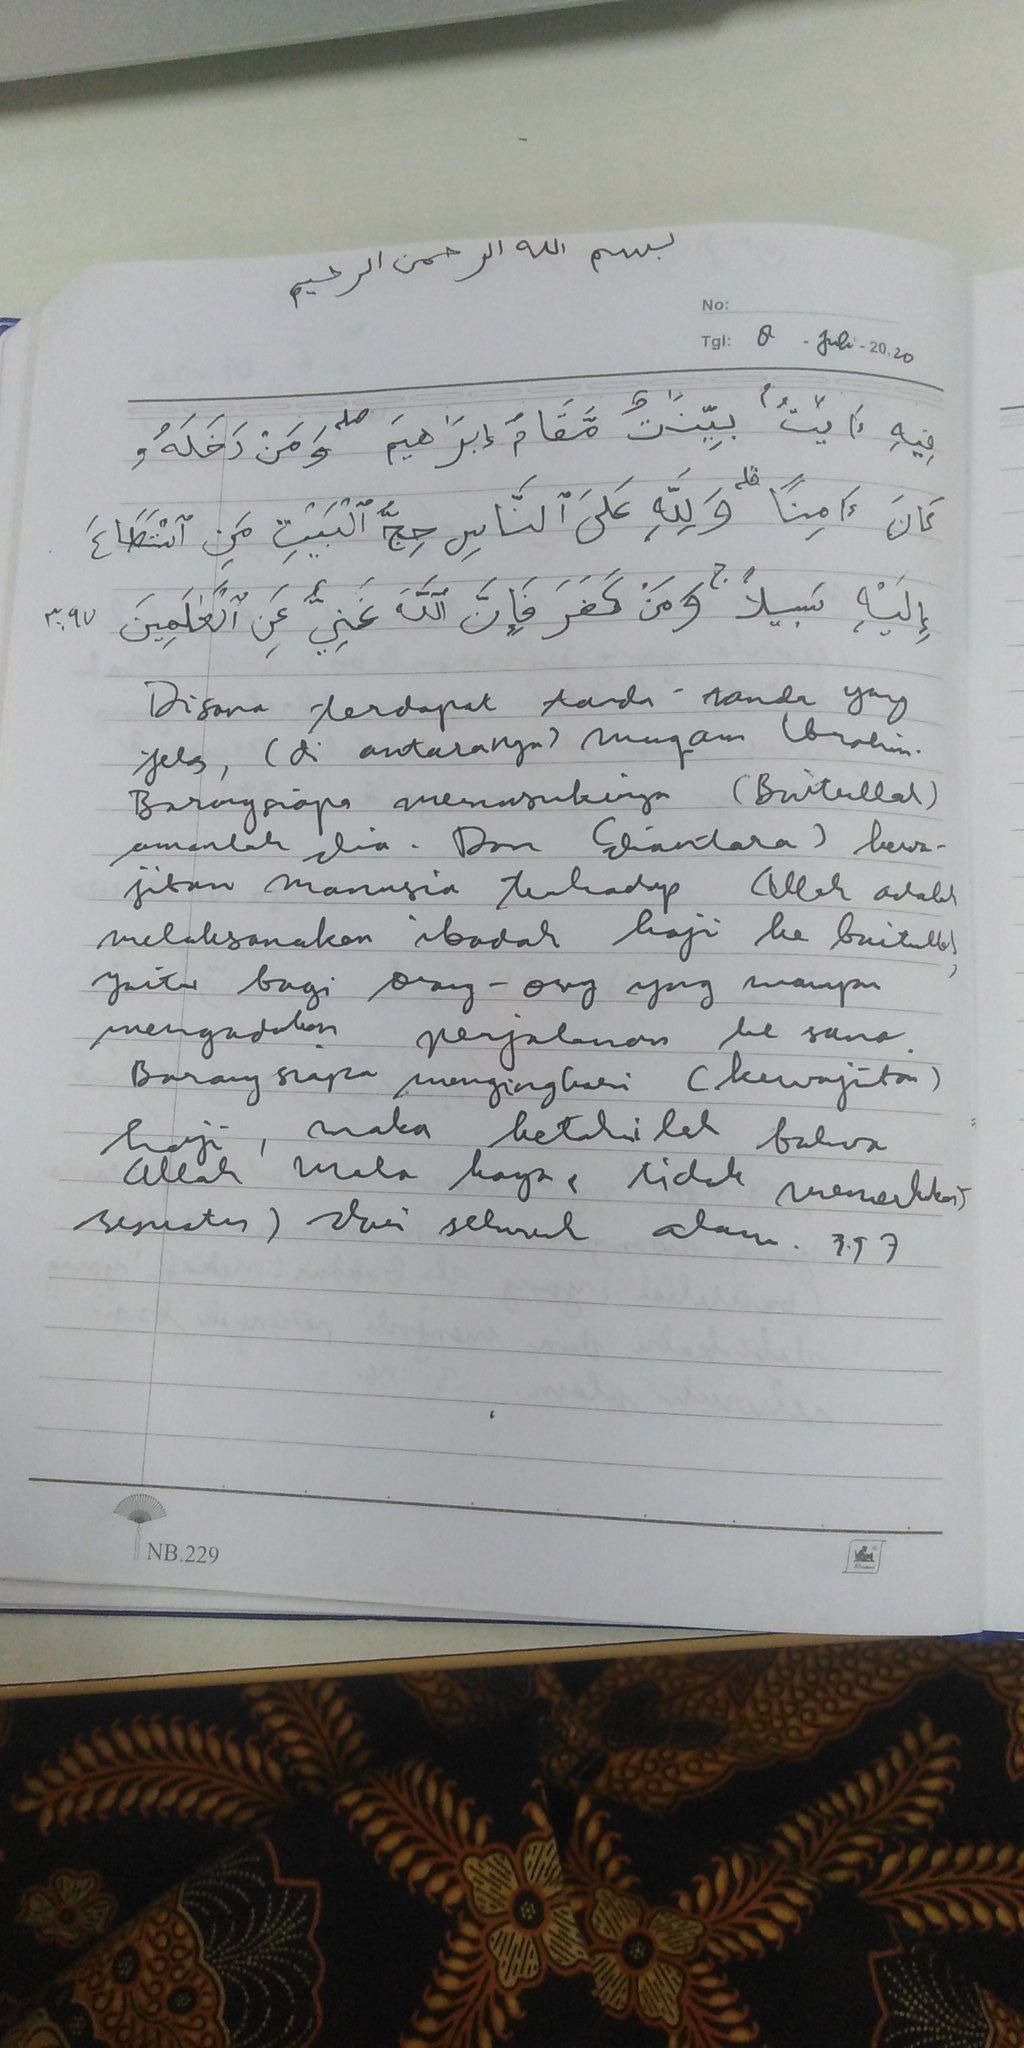 بسم الله الرحمن الرحيم
No:
Tgl: 8 - Juli - 2020
فِيهِ ءَايَٰتٌۢ بَيِّنَٰتٌ مَّقَامُ إِبْرَٰهِيمَ ۖ وَمَنْ دَخَلَهُۥ
كَانَ ءَامِنًا ۗ وَلِلَّهِ عَلَى ٱلنَّاسِ حِجُّ ٱلْبَيْتِ مَنِ ٱسْتَطَاعَ
إِلَيْهِ سَبِيلًا ۚ وَمَنْ كَفَرَ فَإِنَّ ٱللَّهَ غَنِيٌّ عَنِ ٱلْعَٰلَمِينَ ٣:٩٧
Disana terdapat tanda-tanda yang
jelas, (di antaranya) maqam Ibrahim.
Barangsiapa memasukinya (Baitullah)
amanlah dia. Dan (diantara) kewa-
jiban manusia terhadap Allah adalah
melaksanakan ibadah haji ke baitullah,
yaitu bagi orang-orang yang mampu
mengadakan perjalanan ke sana.
Barangsiapa mengingkari (kewajiban)
haji, maka ketahuilah bahwa
Allah Maha kaya (tidak memerlukan
sesuatu) dari seluruh alam. 3:97
NB.229